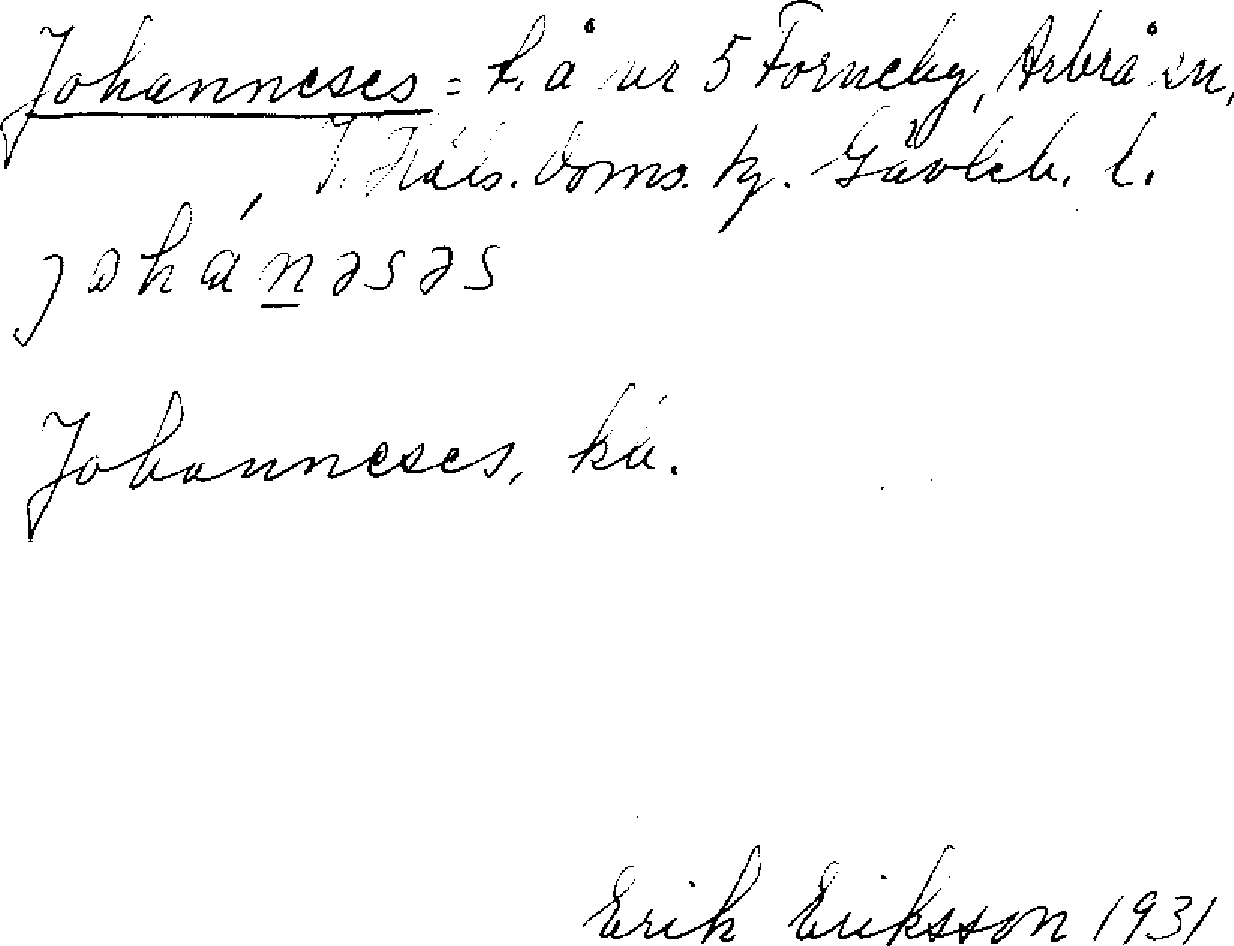 Johanneses = h. å nr 5 Forneby, Arbrå sn,
V. Häls. doms. tg. Gävleb. l.
johánəsəs
Johanneses, hå.
Erik Eriksson 1931